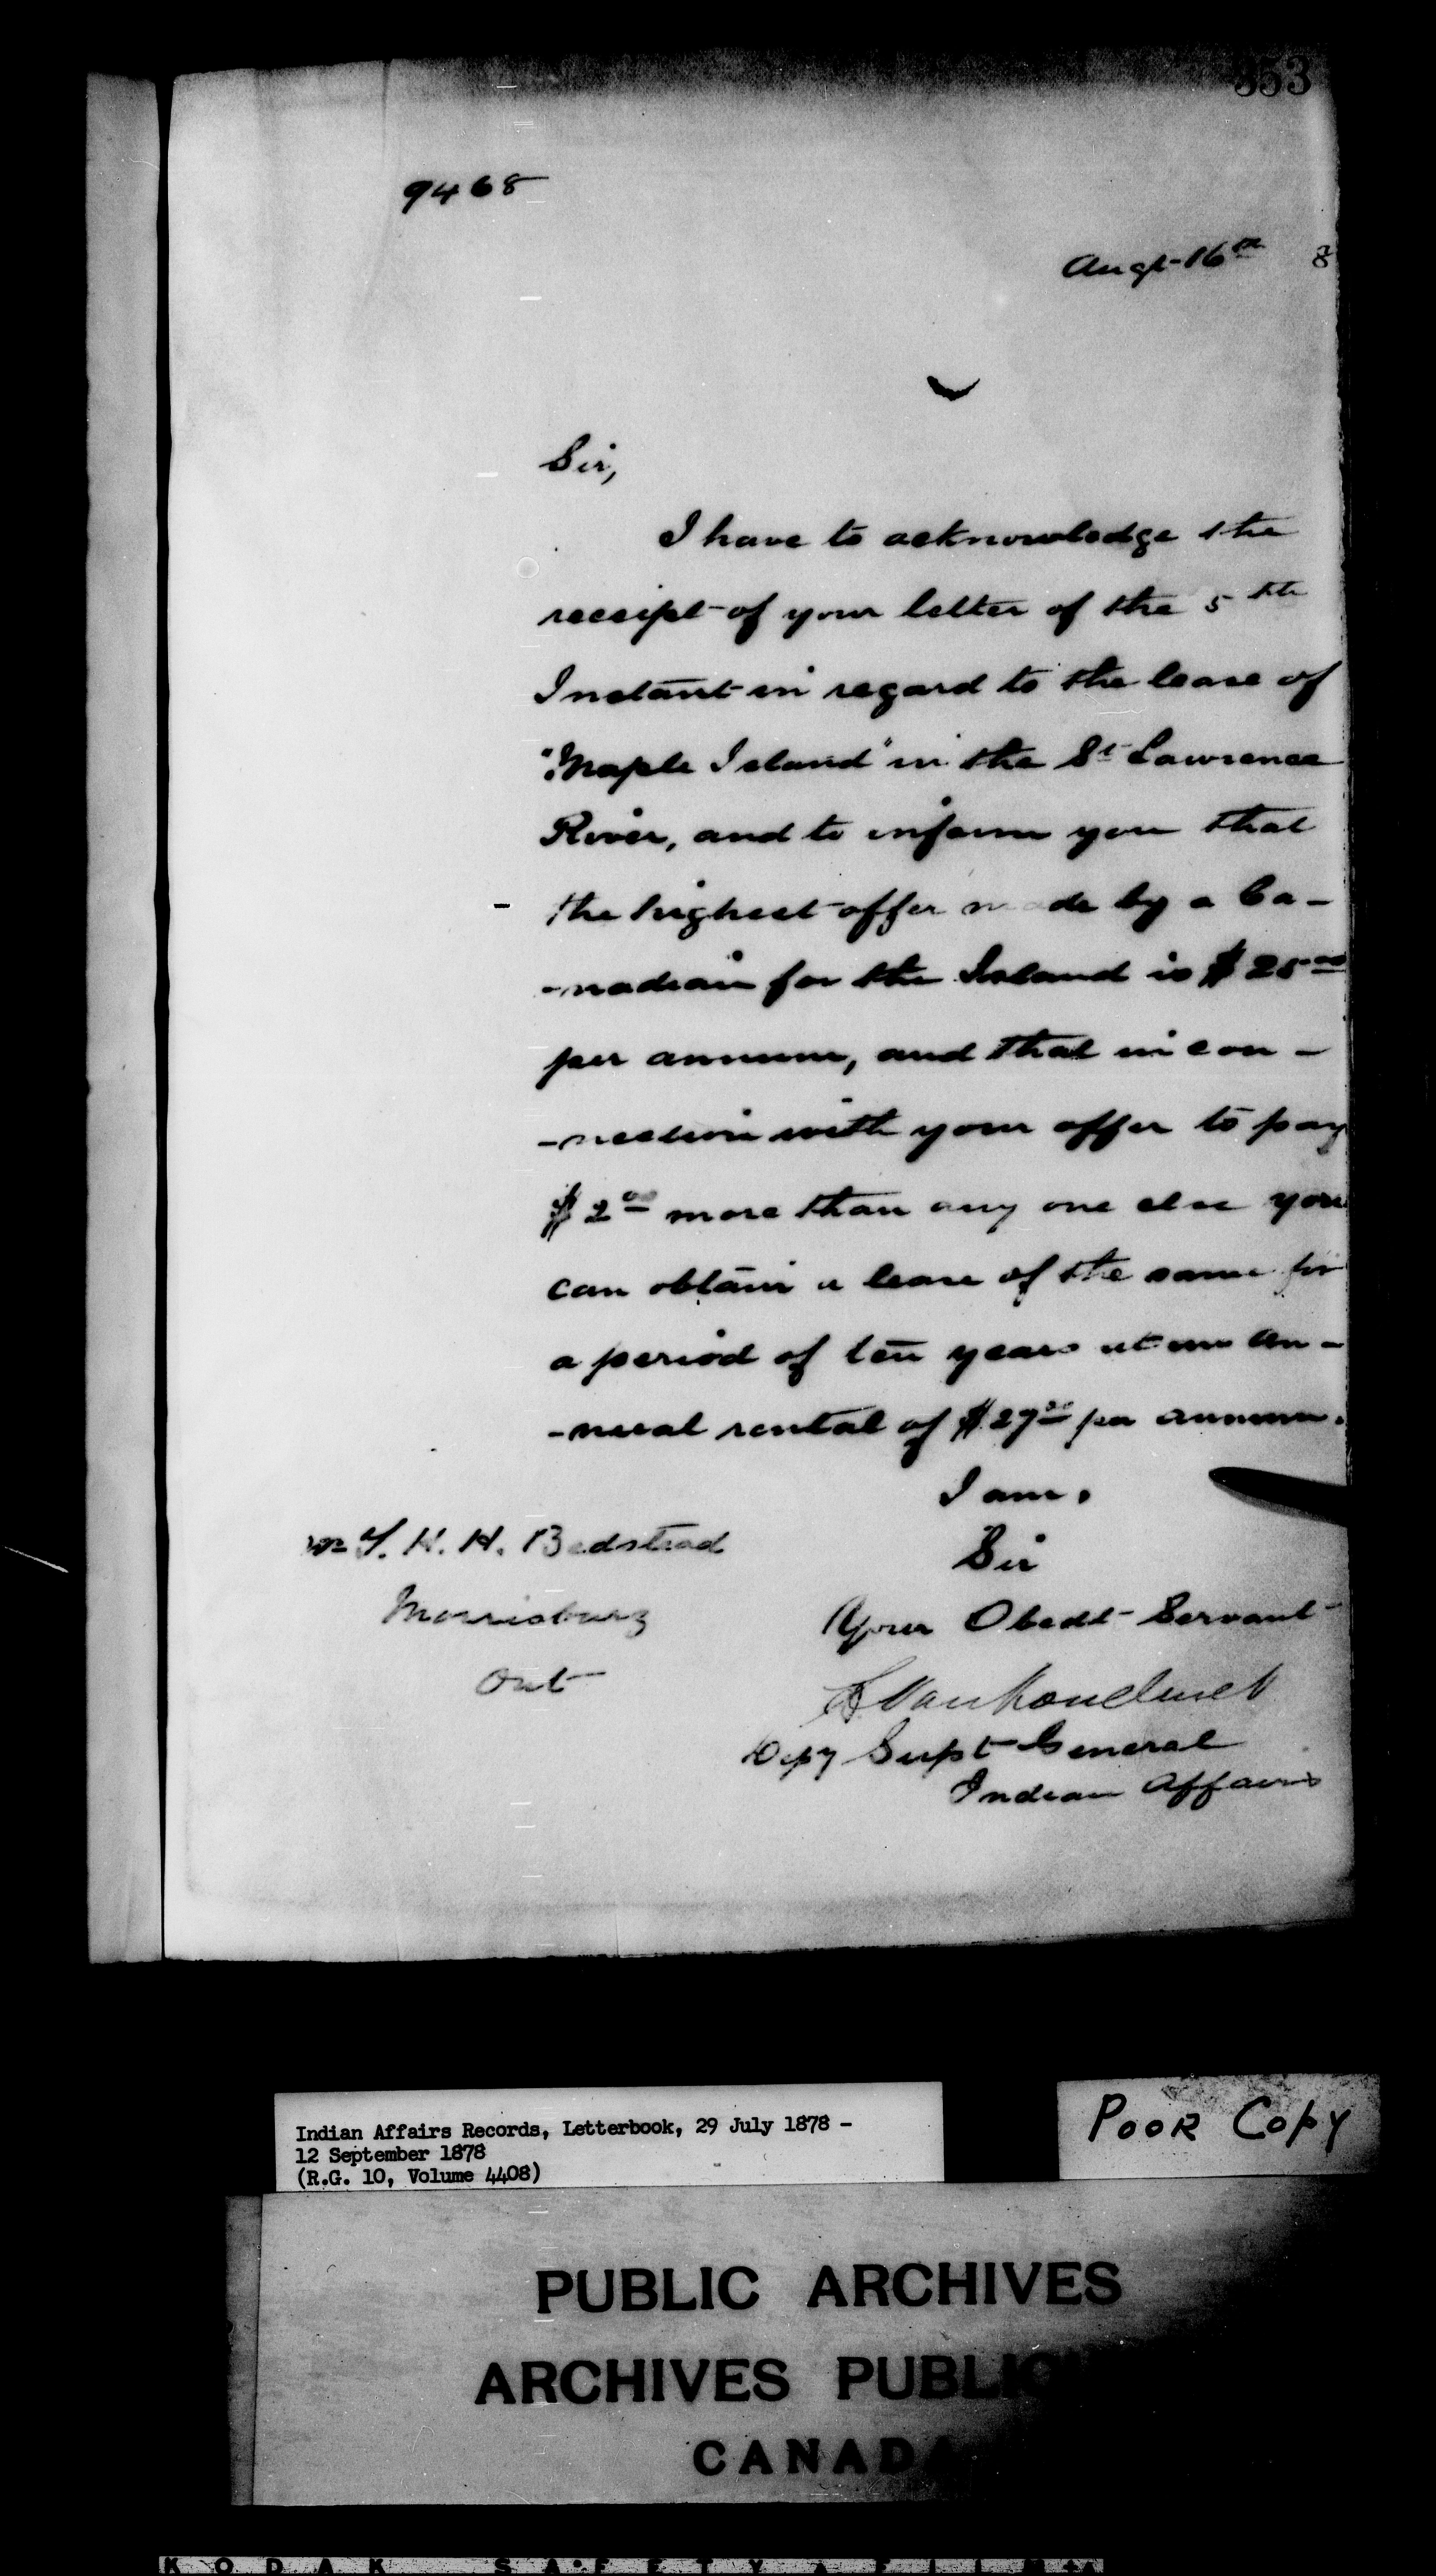 353
9468
Augt-16th 8
Sir,
I have to acknowledge the
receipt of your letter of the 5th
Instant in regard to the lease of
"Maple Island" in the St Lawrence
River, and to inform you that
the highest offer made by a Ca-
-nadian for the Island is $25 00
per annum, and that in con-
-nection with your offer to pay
$2 00 more than any one else you
can obtain a lease of the same for
a period of ten years at an an-
-nual rental of $27 00 per annum.
I am,
Sir
Your Obedt Servant
Mr T. H. H. Bedstead
Morrisburg
Ont
L VanKoughnet
Depy Supt General
Indian Affairs
Indian Affairs Records, Letterbook, 29 July 1878 -
12 September 1878
(R.G. 10, Volume 4408)
POOR COPY
PUBLIC ARCHIVES
ARCHIVES PUBLIQ
CANADA
KODAK SAFETY FILM